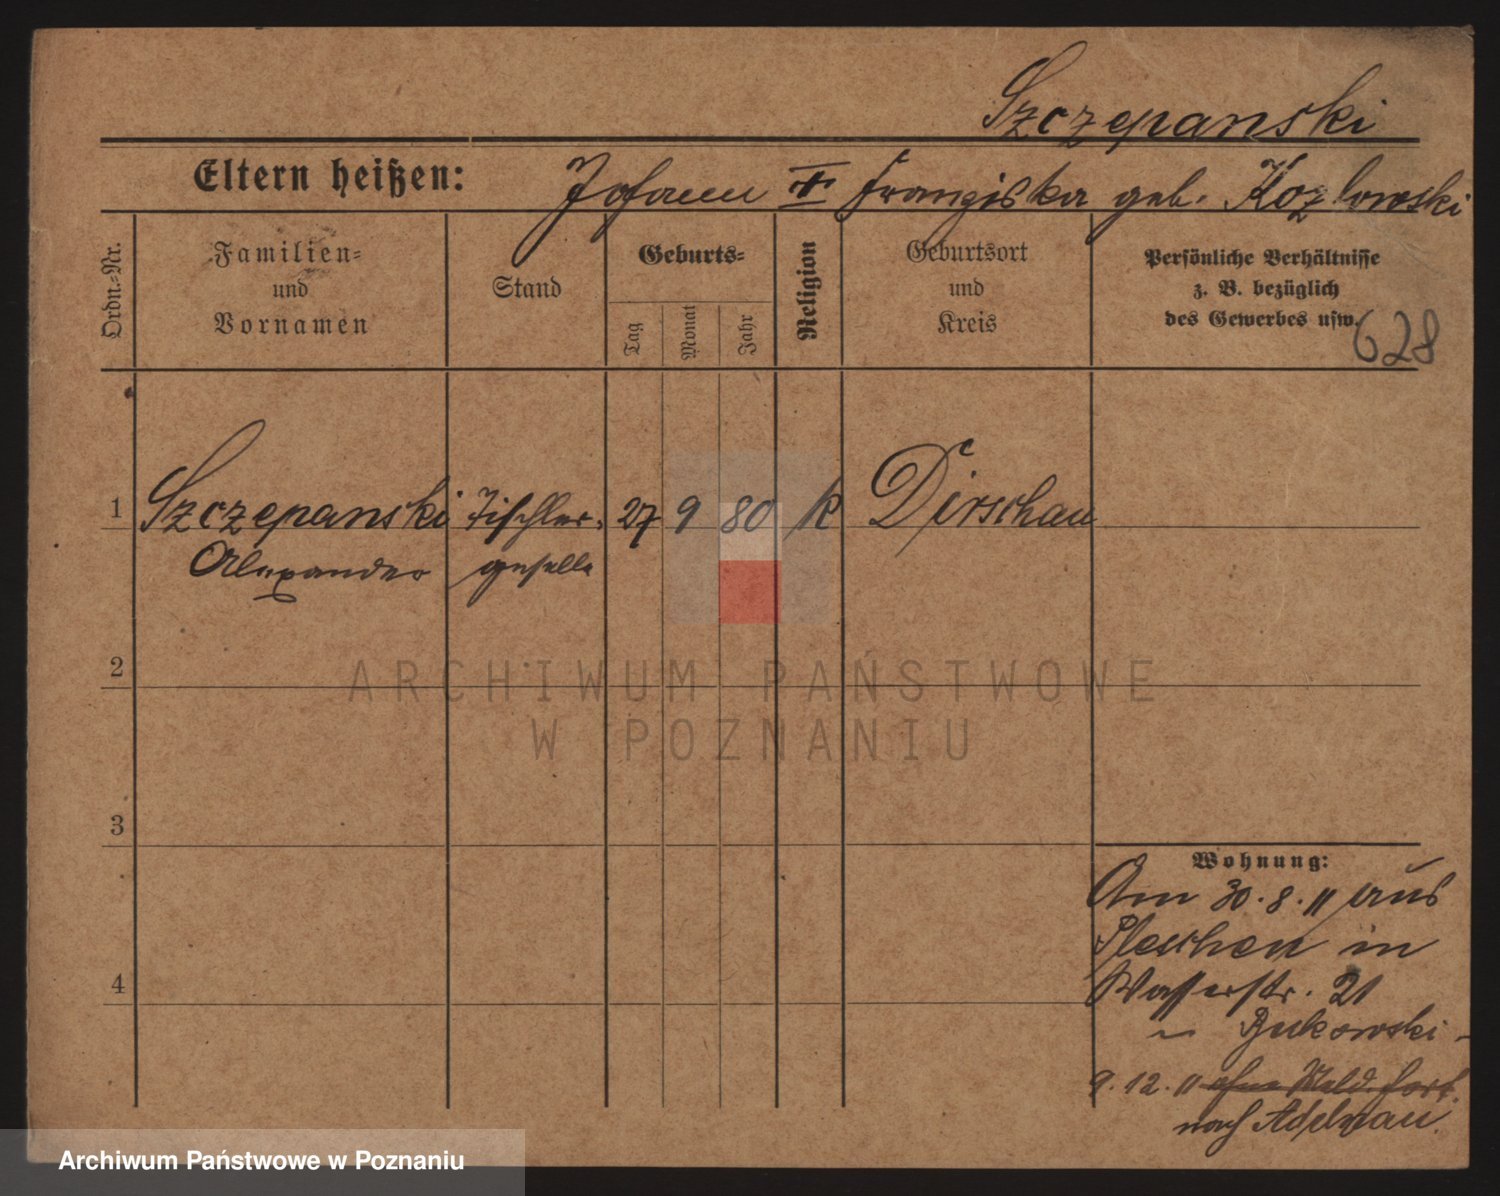 Szczepanski
Eltern heißen: Johann ‡ Franziska geb. Kozlowski
Ordn.-Nr.
Familien-
und
Vornamen
Stand
Geburts-
Tag
Monat
Jahr
Religion
Geburtsort
und
Kreis
Persönliche Verhältnisse
z. B. bezüglich
des Gewerbes usw.
628
1 Szczepanski Tischler- 27 9 80 k Dirschau
Alexander geselle
2
3
4
Wohnung:
Am 30.8.11 aus
Pleschen in
Wasserstr. 21
~ Bukowski -
9.12.11 ohne Meld. fort.
nach Adelnau.
ARCHIWUM PAŃSTWOWE
W POZNANIU
Archiwum Państwowe w Poznaniu